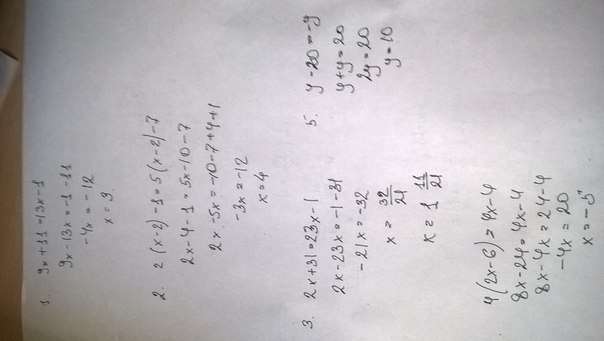 1. 9x+11=13x-1
9x-13x=-1-11
-4x=-12
x=3
2. 2(x-2)-1=5(x-2)-7
2x-4-1=5x-10-7
2x-5x=-10-7+4+1
-3x=-12
x=4
3. 2x+31=23x-1
2x-23x=-1-31
-21x=-32
x=32/21
x=1 11/21
4(2x-6)=4x-4
8x-24=4x-4
8x-4x=24-4
-4x=20
x=-5
5. y-20=-y
y+y=20
2y=20
y=10